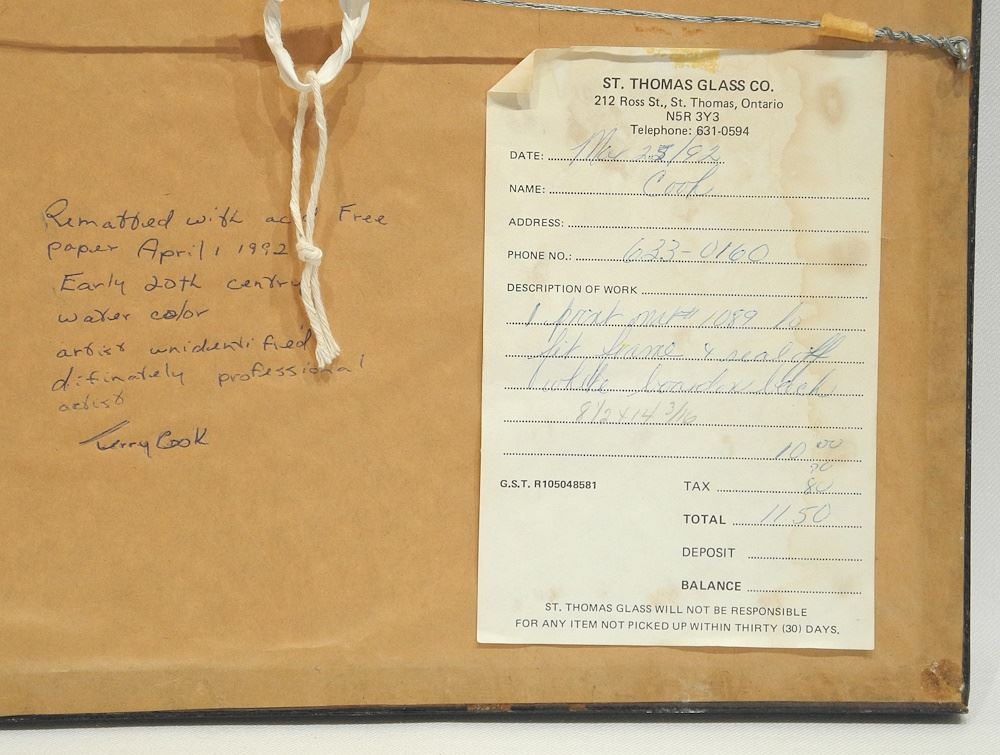 Rematted with acid Free
paper April 1 1992
Early 20th centry
water color
artist unidentified
difinately professional
artist
Terry Cook
ST. THOMAS GLASS CO.
212 Ross St., St. Thomas, Ontario
N5R 3Y3
Telephone: 631-0594
DATE: Mar 25/92
NAME: Cook
ADDRESS:
PHONE NO.: 633-0160
DESCRIPTION OF WORK
1 print mat # 1089 to
fit frame & seal off
white back
8 1/2 x 14 3/16
10 00
70
G.S.T. R105048581
TAX 80
TOTAL 11 50
DEPOSIT
BALANCE
ST. THOMAS GLASS WILL NOT BE RESPONSIBLE
FOR ANY ITEM NOT PICKED UP WITHIN THIRTY (30) DAYS.